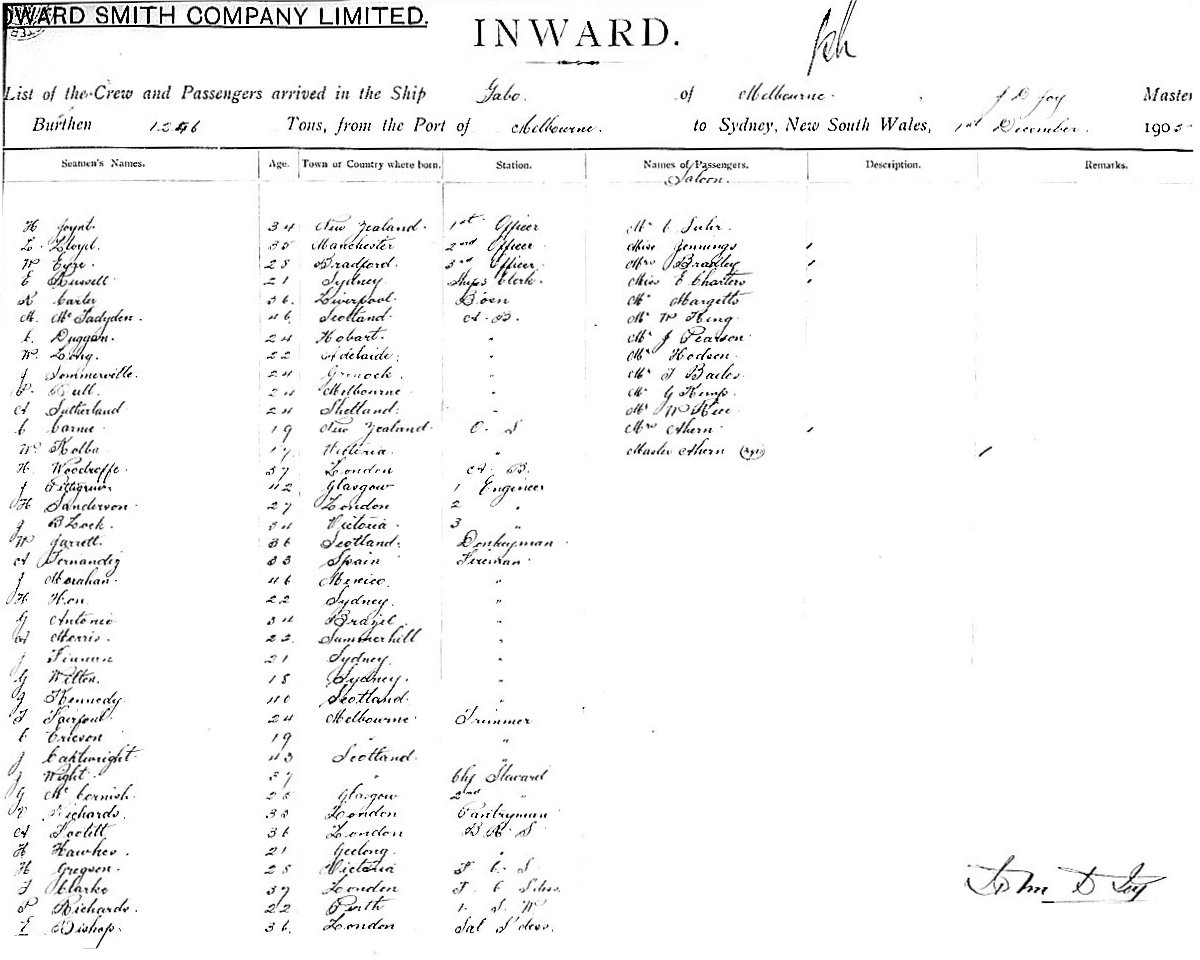 OWARD SMITH COMPANY LIMITED.
INWARD.
List of the Crew and Passengers arrived in the Ship Gabo. of Melbourne. J D Joy Master
Burthen Tons, from the Port of Melbourne. to Sydney, New South Wales, 1st December. 1905
Seamen's Names. Age. Town or Country where born. Station. Names of Passengers. Description. Remarks.
Saloon.
H Joynt. 34 New Zealand. 1st Officer Mr C Suhr.
L. Lloyd. 35 Manchester 2nd Officer Miss Jennings
W Eyre. 28 Bradford. 3rd Officer Mrs Bradley
E Russell 21 Sydney. Ships Clerk. Miss E Charters
R Carter 36. Liverpool. Bosn Mr Margetts
M. McFadyden. 46 Scotland A. B. Mr W King
C. Duggan. 24 Hobart. " Mr J Pearson
W. Long. 22 Adelaide. " Mr Hodson
J Sommerville. 24 Greenock. " Mr F Bailes
24 Melbourne " Mr G Kemp
A Sutherland 24 Shetland. " Mr W Rice
C Carne 19 New Zealand. O. S Mrs Ahern
W. Kolba 17 Victoria. " Master Ahern
H. Woodroffe. 37 London A. B.
J Pettigrew 42 Glasgow 1 Engineer
H Sanderson 27 London 2 "
J Block. 34 Victoria. 3 "
W Jarrett. 36 Scotland. Donkeyman
A Fernandez 33 Spain Fireman
J Monahan. 46 Mexico. "
H Hon. 22 Sydney. "
G Antonio 34 Brazil "
A Morris. 22. Summerhill "
J Finnan 21 Sydney. "
G Wilton. 18 Sydney. "
J Kennedy. 40 Scotland. "
F Fairfoul. 24 Melbourne. Trimmer
C Ericson 19 " "
J Cartwright. 43 Scotland. "
J Wight. 37 " Chf Steward
G McCornish. 25 Glasgow 2nd "
Richards. 33 London Pantryman
A 36 London B. R. S
H Hawkes. 21 Geelong. "
H Gregson. 28 Victoria F. C. S
F Clarke 37 London F. C Sdess
P Richards. 22 Perth
E Bishop. 36. London Sal S'dess.
John D Joy